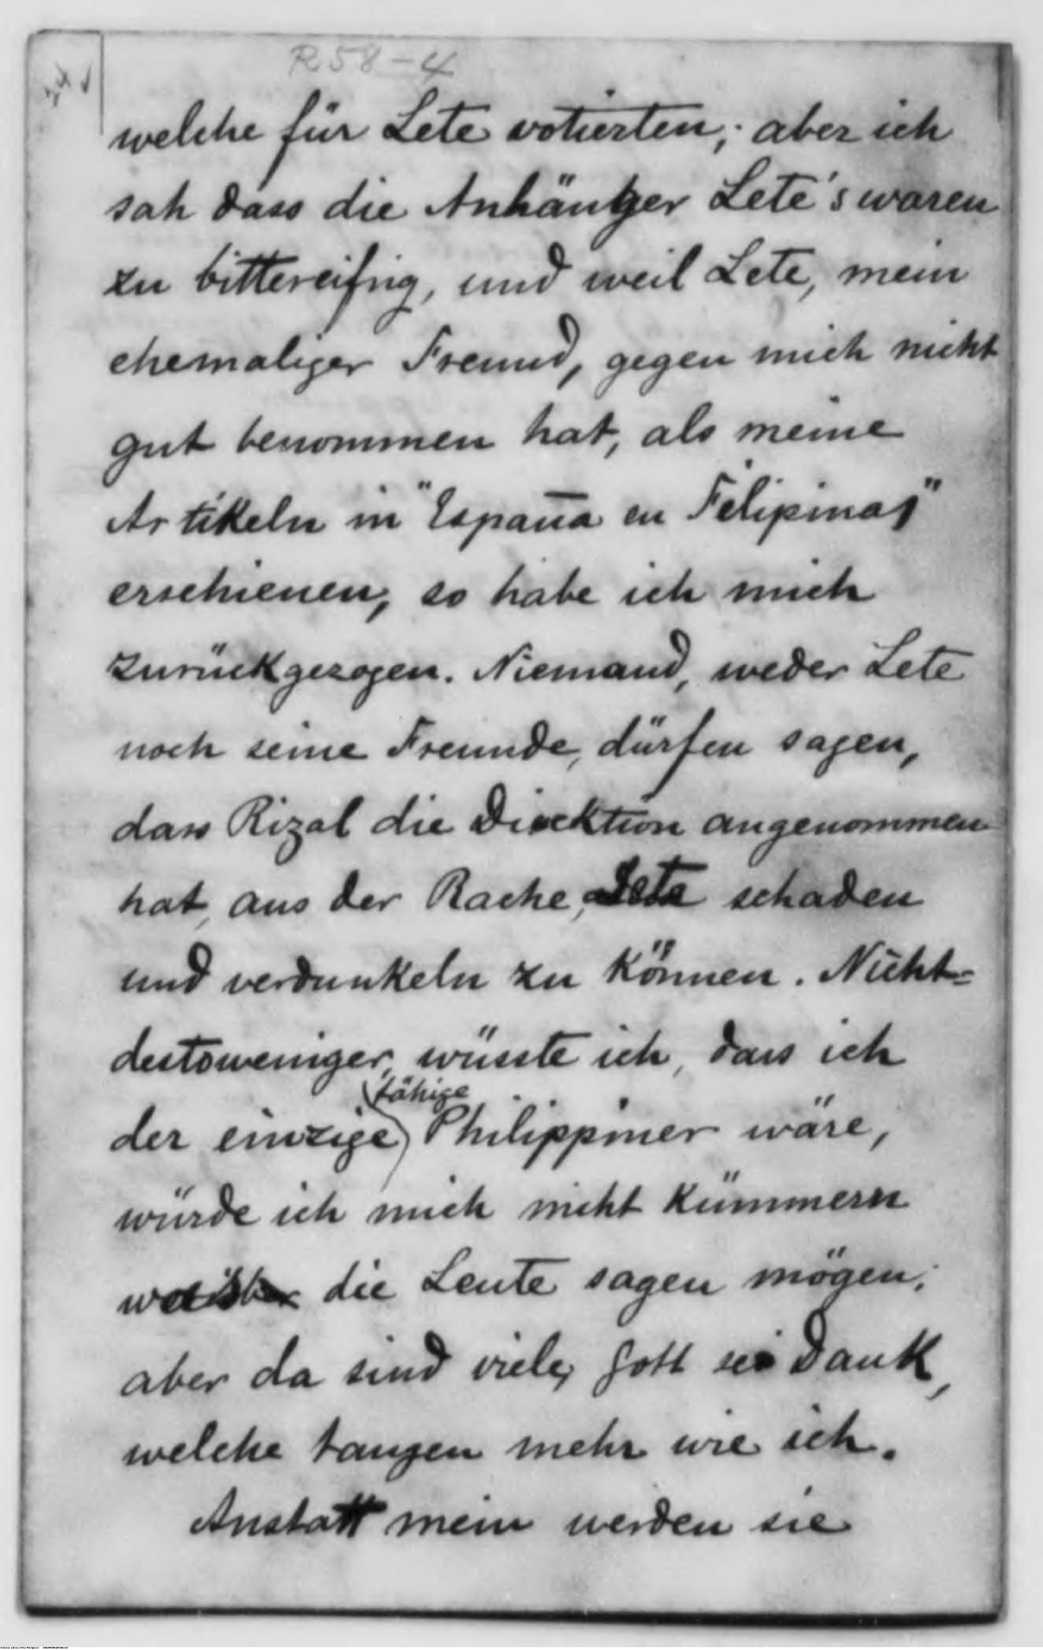 R58-4
welche für Lete votierten; aber ich
sah dass die Anhänger Lete's waren
zu bittereifrig, und weil Lete, mein
ehemaliger Freund, gegen mich nicht
gut benommen hat, als meine
Artikeln in "España en Filipinas"
erschienen, so habe ich mich
zurückgezogen. Niemand, weder Lete
noch seine Freunde, dürfen sagen,
dass Rizal die Direktion angenommen
hat, aus der Rache, Lete schaden
und verdunkeln zu können. Nicht=
destoweniger, wüsste ich, dass ich
der einzige fähige Philippiner wäre,
würde ich mich nicht kümmern
die Leute sagen mögen;
aber da sind viele, Gott sei Dank,
welche taugen mehr wie ich.
Anstatt mein werden sie